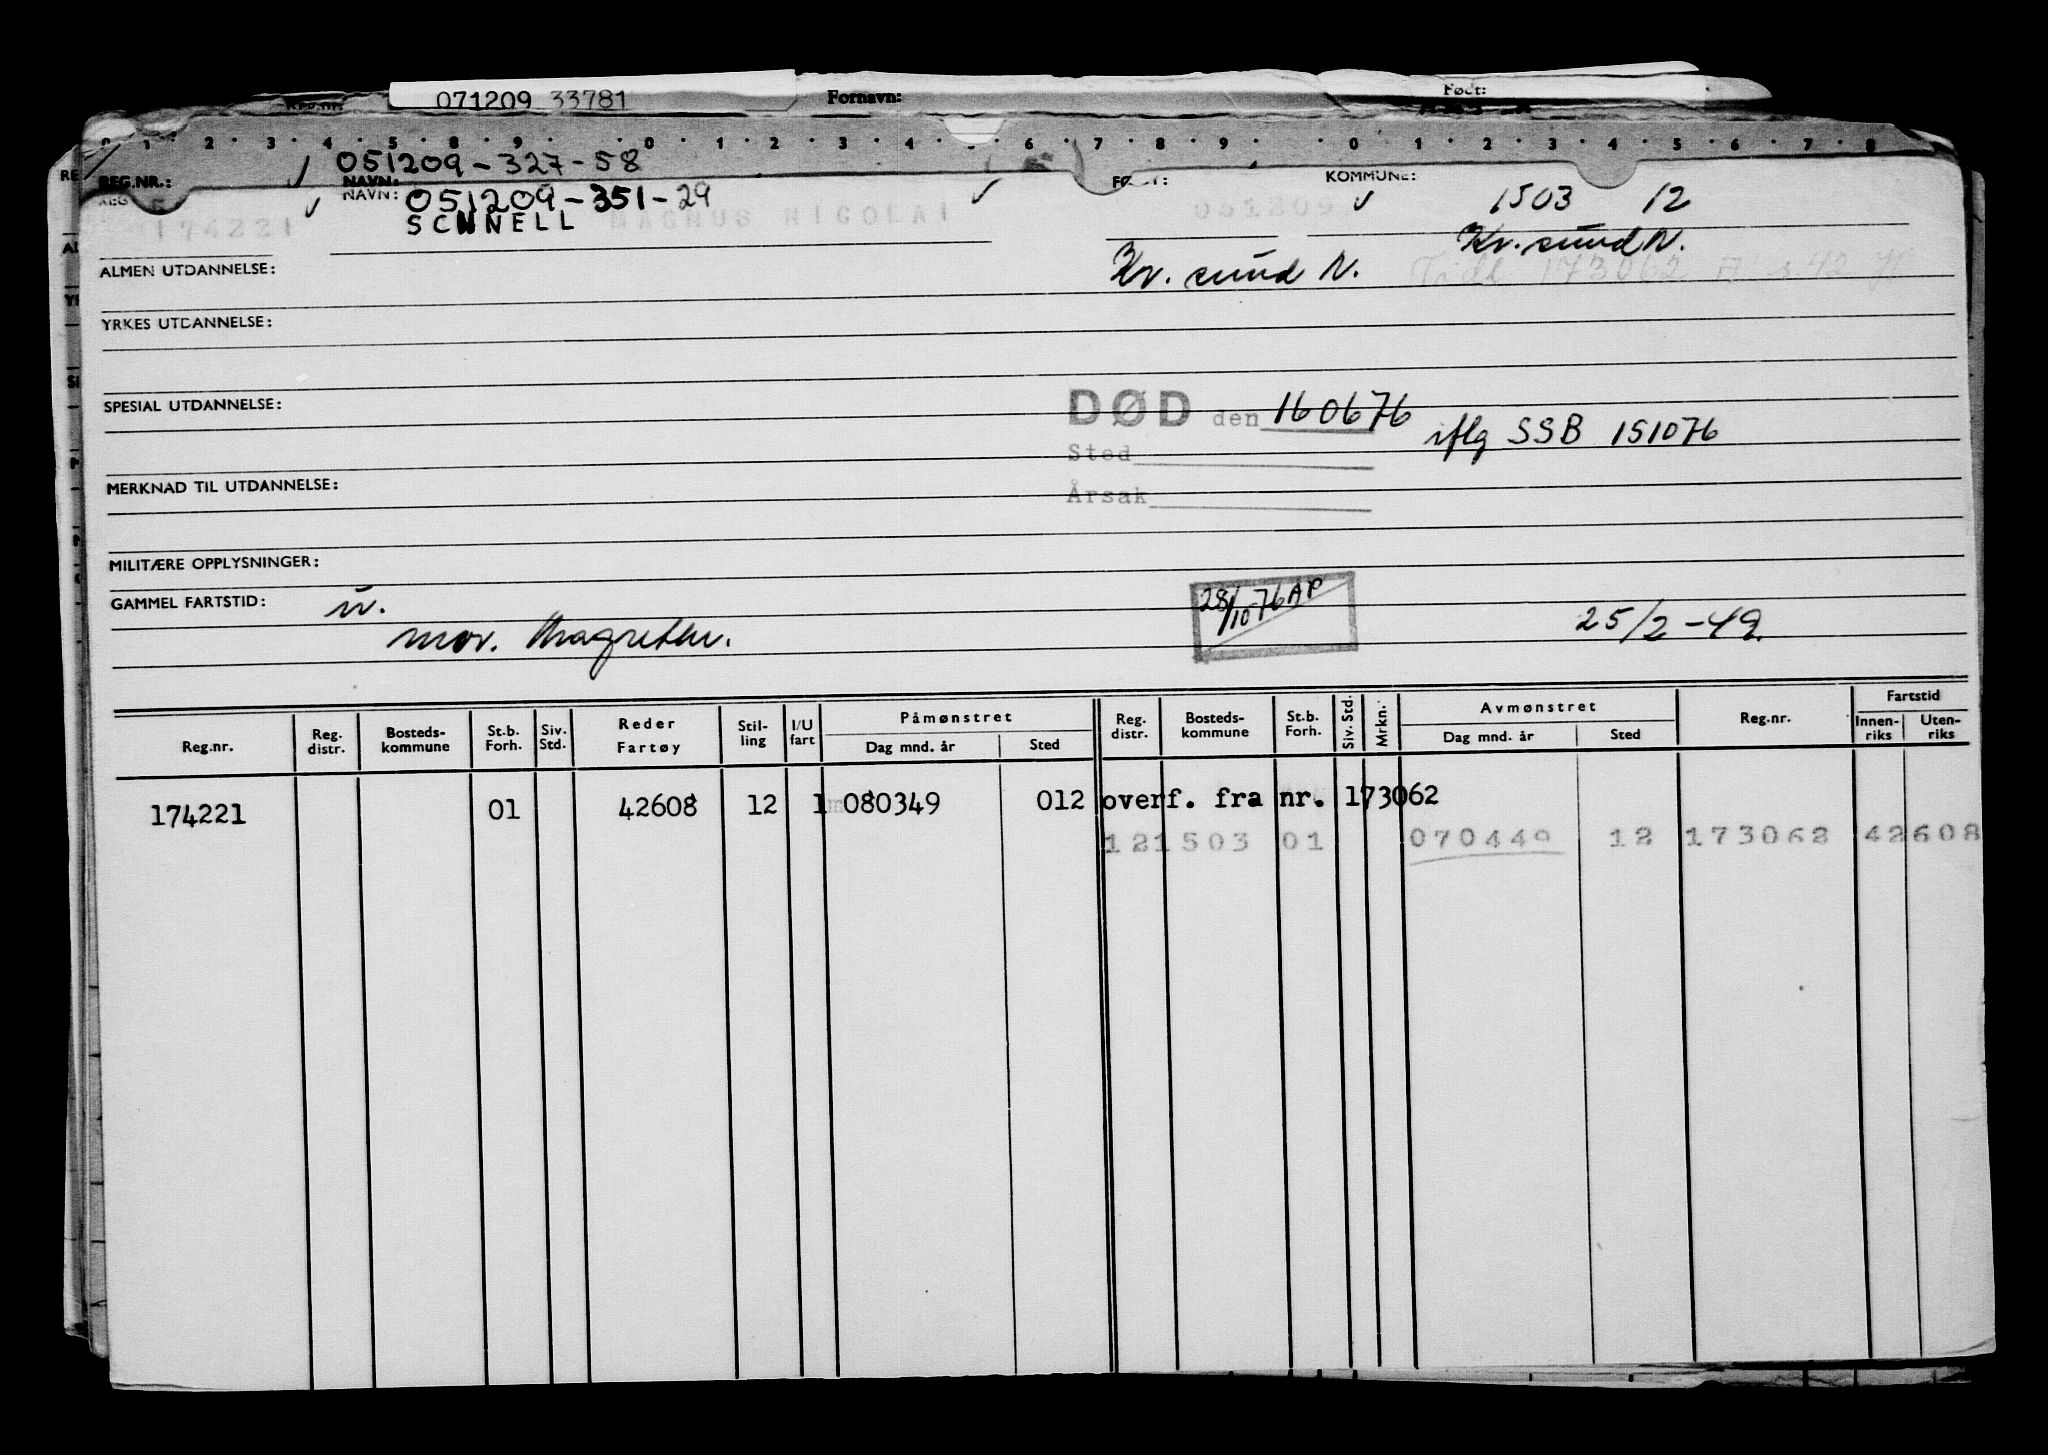 071209 33781 Fornavn: Født:
1 2 3 4 5 8 9 0 1 2 3 4 6 7 8 9 0 1 2 3 4 5 6 7 8
051209-327-58
REG.NR.: NAVN: KOMMUNE:
NAVN: 051209-351-29 1503 12
174221 SCHNELL MAGNUS NICOLAI 051209
Kr.sund N.
ALMEN UTDANNELSE: Kr. sund N. Tidl 173062
YRKES UTDANNELSE:
SPESIAL UTDANNELSE: DØD den 160676
iflg SSB 151076
Sted
MERKNAD TIL UTDANNELSE: Årsak
MILITÆRE OPPLYSNINGER:
GAMMEL FARTSTID: ü. 28/10 76 AP 25/2-49.
mor. Magrethe.
Reg.nr. Reg. distr. Bosteds-kommune St.b. Forh. Siv. Std. Reder Fartøy Stil-ling I/U fart Påmønstret Dag mnd. år Sted Reg. distr. Bosteds-kommune St.b. Forh. Siv. Std. Mrkn. Avmønstret Dag mnd. år Sted Reg.nr. Fartstid Innen-riks Uten-riks
174221 01 42608 12 1 080349 012 overf. fra nr. 173062
121503 01 070449 12 173062 42608